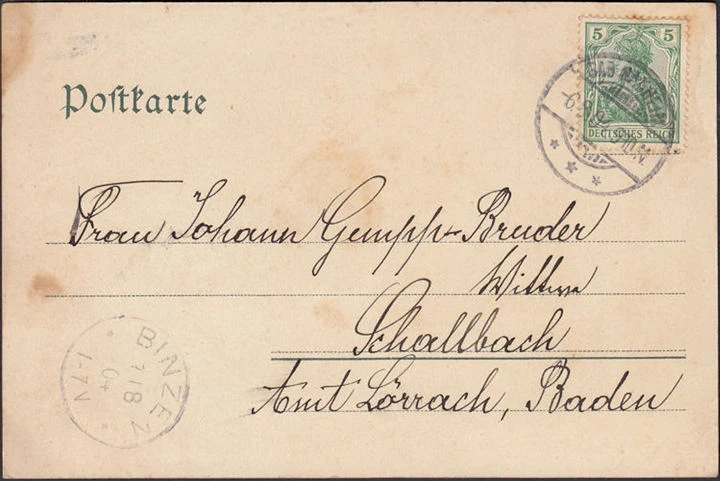 5 5
DEUTSCHES REICH
Postkarte
Frau Johann Gempp-Bruder
Wittwe
Schallbach
Amt Lörrach, Baden
BINZEN
7/8
04
1-7V